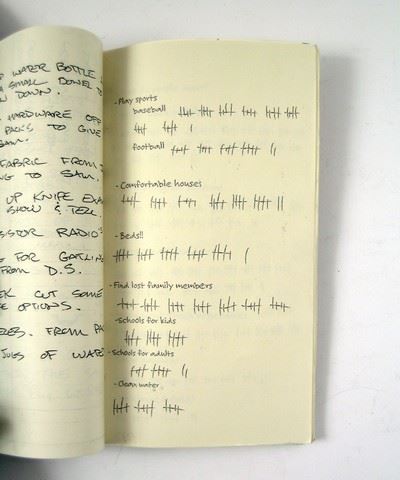 WATER BOTTLE
SMALL DOWEL TO
DOWN.
HARDWARE OFF
PACKS TO GIVE
SAM.
FABRIC FROM
TO SAM.
UP KNIFE
SHOW & TELL.
RADIO
FOR
FROM D.S.
OUT SOME
OPTIONS.
FROM
JUGS OF WATER
- Play sports
baseball
football
- Comfortable houses
- Beds!!
- Find lost family members
- Schools for kids
- Schools for adults
- Clean water